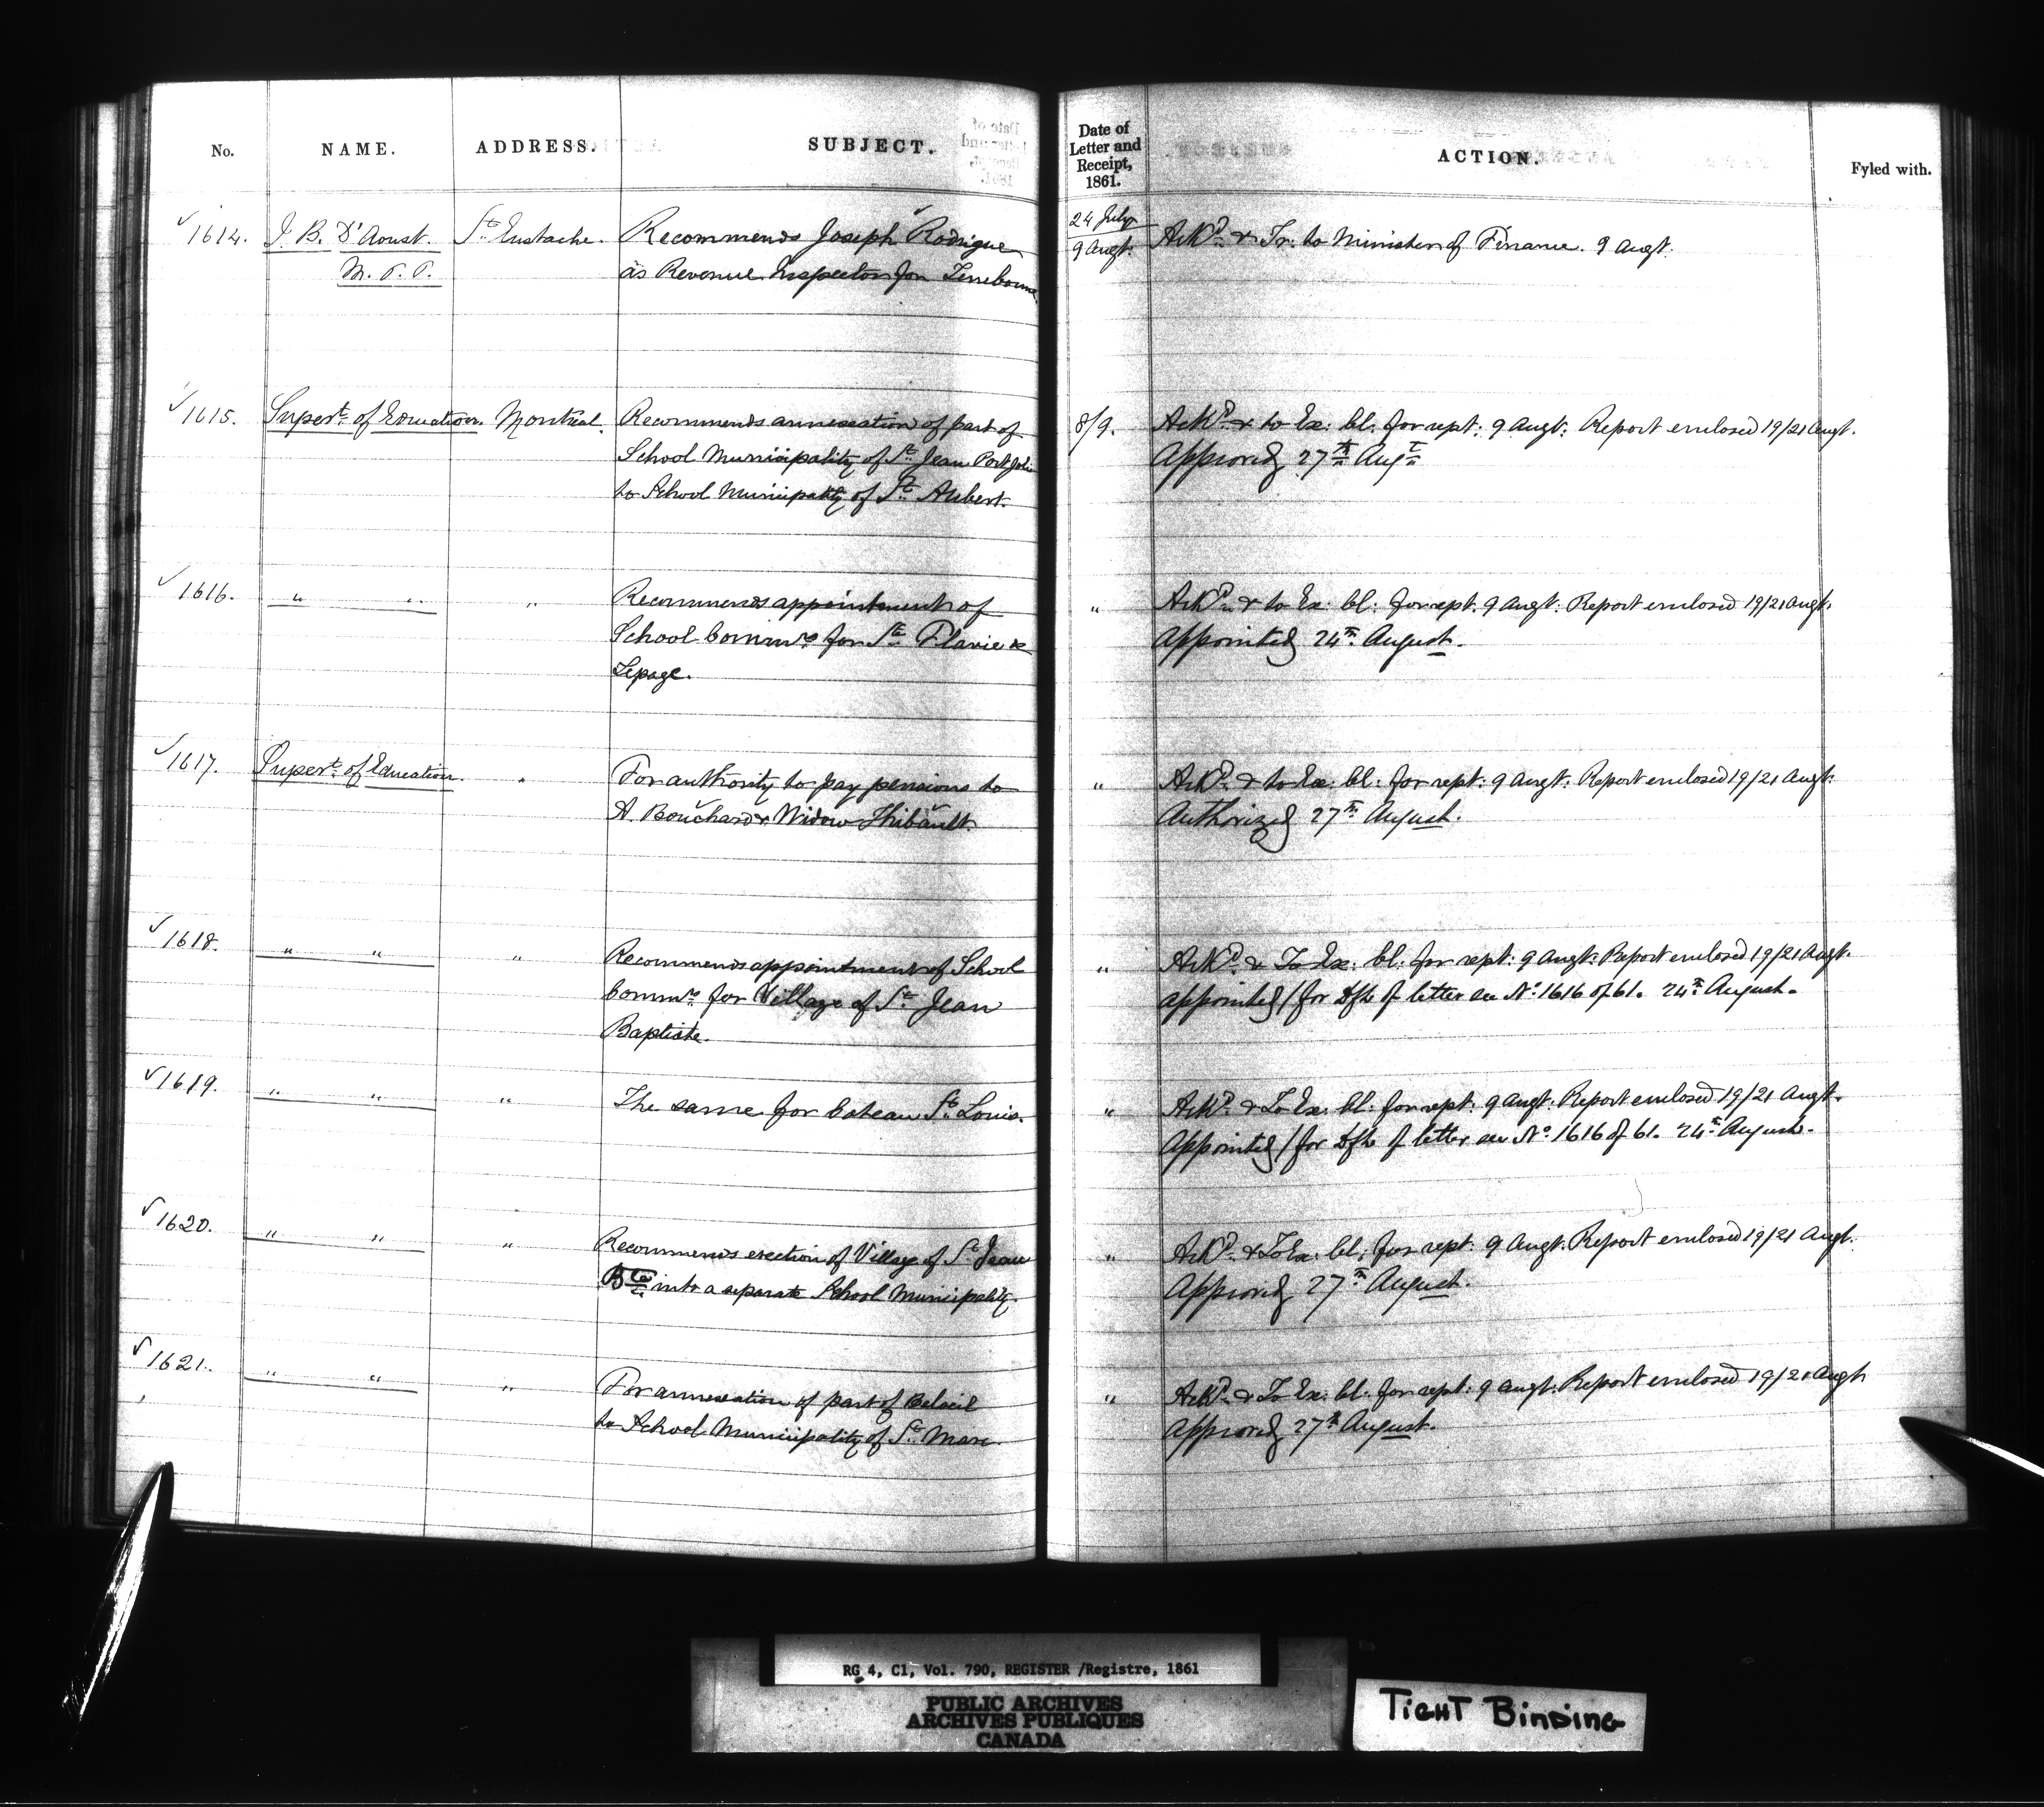 No. NAME. ADDRESS. SUBJECT.
Date of Letter and Receipt, 1861. ACTION. Fyled with.
1614. J. B. D'Aoust. St. Eustache. Recommends Joseph Rodrigue
M. P. P. as Revenue Inspector for Terrebonne
24 July
9 Augt. Ackd. & Tr. to Minister of Finance. 9 Augt.
1615. Supert. of Education. Montreal. Recommends annexation of part of
School Municipality of St. Jean Port Joli
to School Municipality of St. Aubert.
8/9. Ackd. & to Ex: Cl: for rept: 9 Augt: Report enclosed 19/21 Augt.
Approved 27th Augt
1616. " " " Recommends appointment of
School Commrs. for Ste. Flavie &
Lepage.
" Ackd. & to Ex: Cl: for rept. 9 Augt: Report enclosed 19/21 Augt.
Appointed 24th. August.
1617. Supert. of Education. " For authority to pay pensions to
A. Bouchard & Widow Thibault.
" Ackd. & to Ex: Cl: for rept: 9 Augt: Report enclosed 19/21 Augt:
Authorized 27th. August.
1618. " " " Recommends appointment of School
Commrs. for Village of St. Jean
Baptiste.
" Ackd. & To Ex: Cl: for rept: 9 Augt: Report enclosed 19/21 Augt.
appointed / for dft of letter see No. 1616 of 61. 24th August.
1619. " " " The same for Coteau St. Louis.
" Ackd. & To Ex: Cl: for rept: 9 Augt: Report enclosed 19/21 Augt.
Appointed / for dft of letter see No. 1616 of 61. 24th August.
1620. " " " Recommends erection of Village of St. Jean
Bte. into a separate School Municipality.
" Ackd. & To Ex: Cl: for rept: 9 Augt: Report enclosed 19/21 Augt.
Approved 27th August.
1621. " " " For annexation of part of Beloeil
to School Municipality of St. Marc.
" Ackd. & To Ex: Cl: for rept: 9 Augt: Report enclosed 19/21 Augt
Approved 27th August.
RG 4, C1, Vol. 790, REGISTER /Registre, 1861
PUBLIC ARCHIVES
ARCHIVES PUBLIQUES
CANADA
TIGHT BINDING